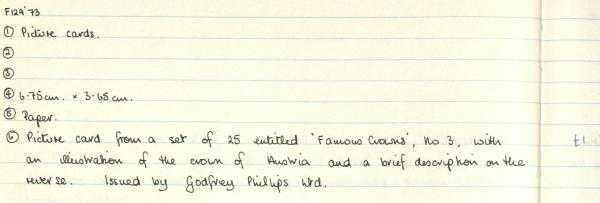 F129'73
① Picture cards.
②
③
④ 6.75cm. × 3.65cm.
⑤ Paper.
⑥ Picture card from a set of 25 entitled 'Famous Crowns', no 3, with £1
an illustration of the crown of Austria and a brief description on the
reverse. Issued by Godfrey Phillips Ltd.